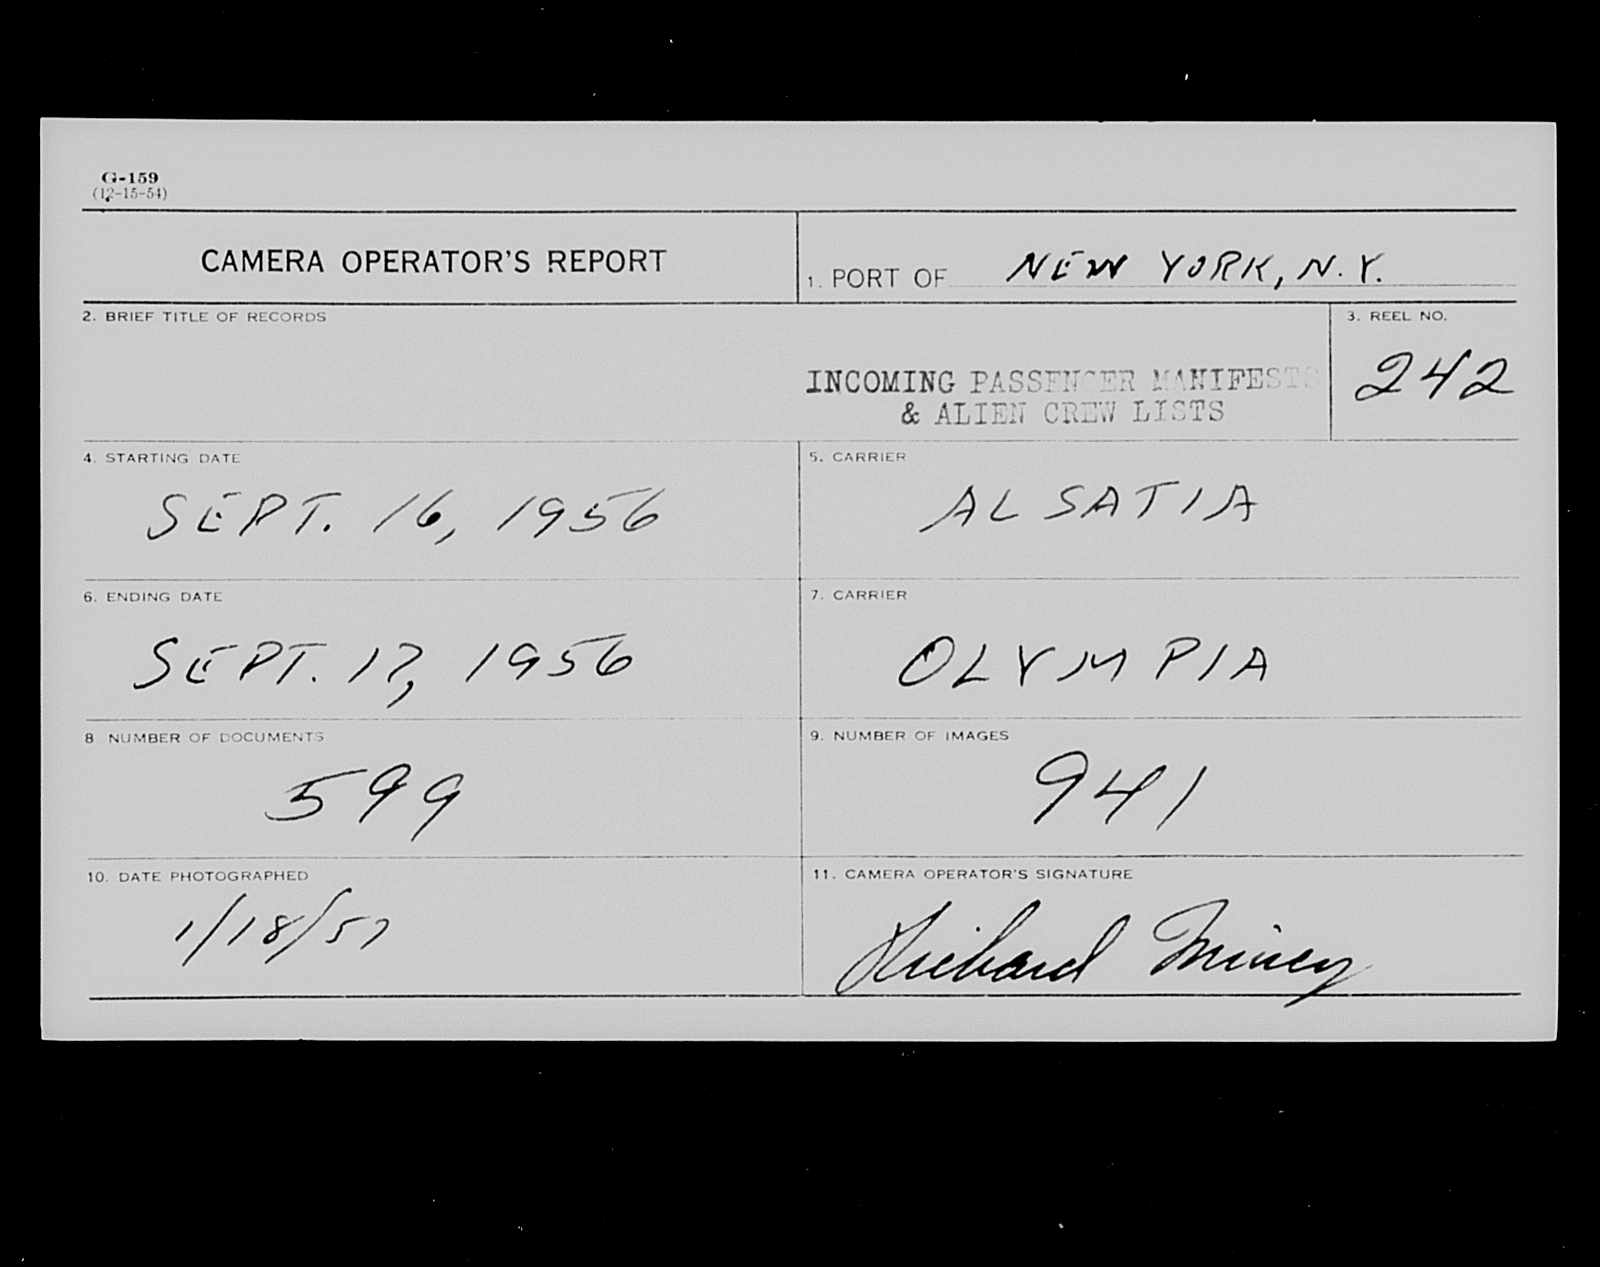 G-159
(12-15-54)
CAMERA OPERATOR'S REPORT
1. PORT OF NEW YORK, N.Y.
2. BRIEF TITLE OF RECORDS
INCOMING PASSENGER MANIFESTS
& ALIEN CREW LISTS
3. REEL NO.
242
4. STARTING DATE
SEPT. 16, 1956
5. CARRIER
ALSATIA
6. ENDING DATE
SEPT. 17, 1956
7. CARRIER
OLYMPIA
8 NUMBER OF DOCUMENTS
599
9. NUMBER OF IMAGES
941
10. DATE PHOTOGRAPHED
1/18/57
11. CAMERA OPERATOR'S SIGNATURE
Richard